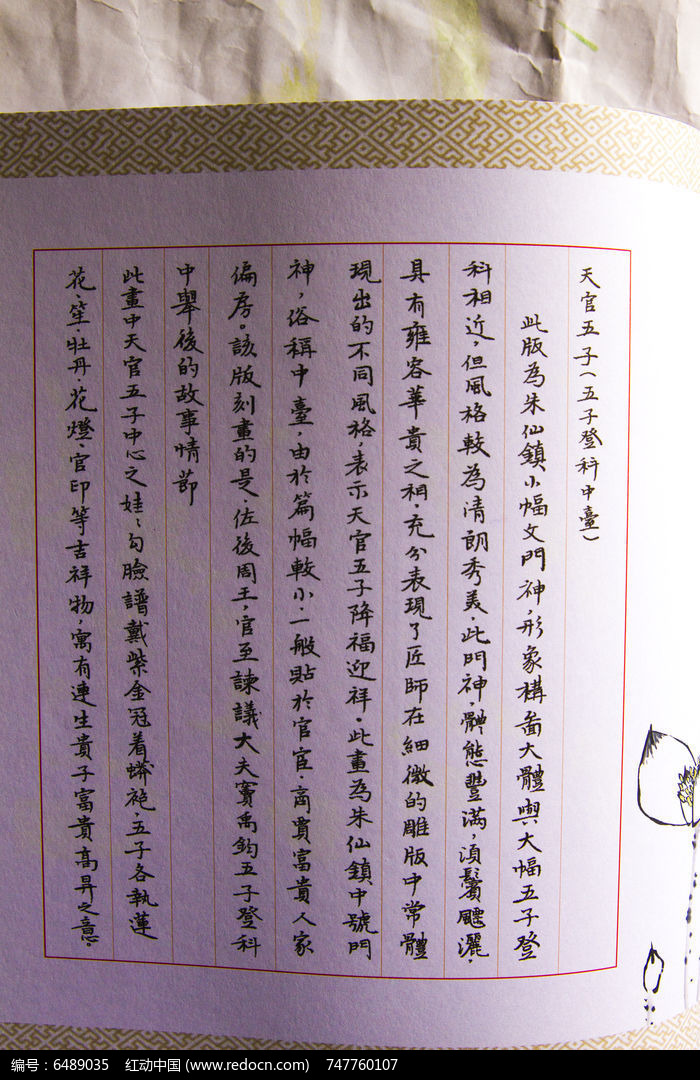 天官五子(五子登科中臺)
此版為朱仙鎮小幅文門神,形象構啚大體與大幅五子登
科相近,但風格較為清朗秀美,此門神,體態豐滿,須鬢飃灑,
具有雍容華貴之相,充分表現了匠師在細微的雕版中常體
現出的不同風格,表示天官五子降福迎祥。此畫為朱仙鎮中號門
神,俗稱中臺,由於篇幅較小,一般貼於官宦、商賈富貴人家
偏房。該版刻畫的是,佐後周王,官至諫議大夫竇禹鈞五子登科
中舉後的故事情節
此畫中天官五子中心之娃,勾臉譜戴紫金冠着蟒袍,五子各執蓮
花、笙、牡丹、花燈、官印、等吉祥物,寓有連生貴子富貴高昇之意。
编号:6489035 红动中国 (www.redocn.com) 747760107